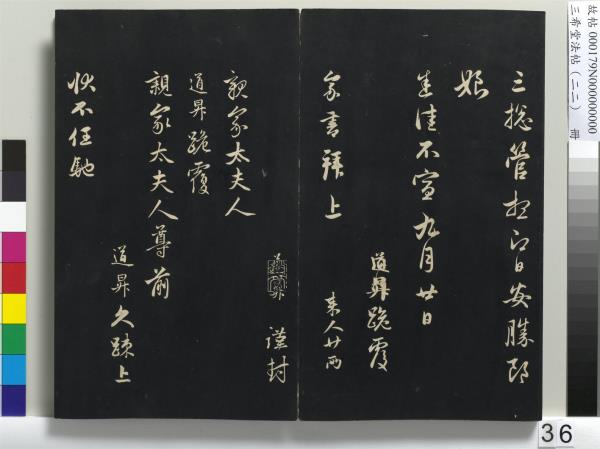 三總管想即日安勝郎
娘
生佳不宣九月廿日
道昇跪覆
家書拜上
來人廿兩
謹封
親家太夫人
道昇跪覆
親家太夫人尊前
道昇久疎上
狀不任馳
故帖 000179N000000000
三希堂法帖（二二） 冊
36